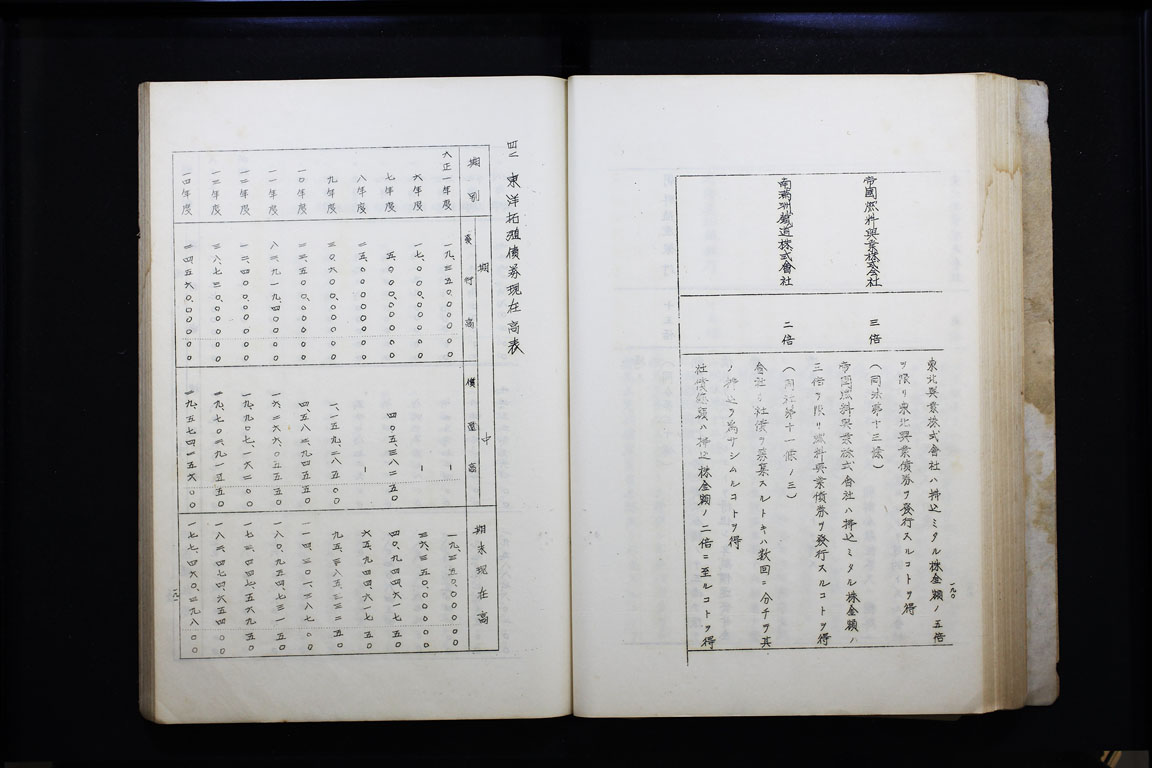 一九〇
東北興業株式會社ハ拂込ミタル株金額ノ五倍
ヲ限リ東北興業債券ヲ發行スルコトヲ得
帝國燃料興業株式会社 三倍 (同法第十三條)
帝國燃料興業株式會社ハ拂込ミタル株金額ハ
三倍ヲ限リ燃料興業債券ヲ發行スルコトヲ得
南滿洲鐵道株式會社 二倍 (同社第十一條ノ三)
會社ハ社債ヲ募集スルトキハ数回ニ分チヲ其
ノ拂込ヲ為サシムルコトヲ得
社債總額ハ拂込株金額ノ二倍ニ至ルコトヲ得
四二 東洋拓殖債券現在高表
期別 期中 發行高 償還高 期末現在高
大正 年度 一九、二五〇、〇〇〇〇〇 ー 一九、二五〇、〇〇〇〇〇
六年度 一七、〇〇〇、〇〇〇〇〇 ー 三六、二五〇、〇〇〇〇〇
七年度 五、〇〇〇、〇〇〇〇〇 四〇、九四四、六一七五〇
八年度 二五、〇〇〇、〇〇〇〇〇 ー 六五、九四四、六一七五〇
九年度 三〇、六〇〇、〇〇〇〇〇 一、一五九、二八五〇〇 九五、三八五、三三二五〇
一〇年度 二三、五〇〇、〇〇〇〇〇 四、五八三、九四五五〇 一一四、三〇一、三八七〇〇
一一年度 八二、九一九、四〇〇〇〇 一六、二六六、〇五五五〇 一八〇、九五四、七三一五〇
一二年度 一二、〇〇〇、〇〇〇〇〇 一九、九〇七、一六二〇〇 一七三、〇四七、五六九五〇
一三年度 二八、七三〇、〇〇〇〇〇 一九、三〇二、九一五五〇 一八二、四七四、六五四〇〇
一四年度 二四、五六〇、〇〇〇〇〇 二九、五七四、二五六〇〇 一七七、四六〇、三九八〇〇